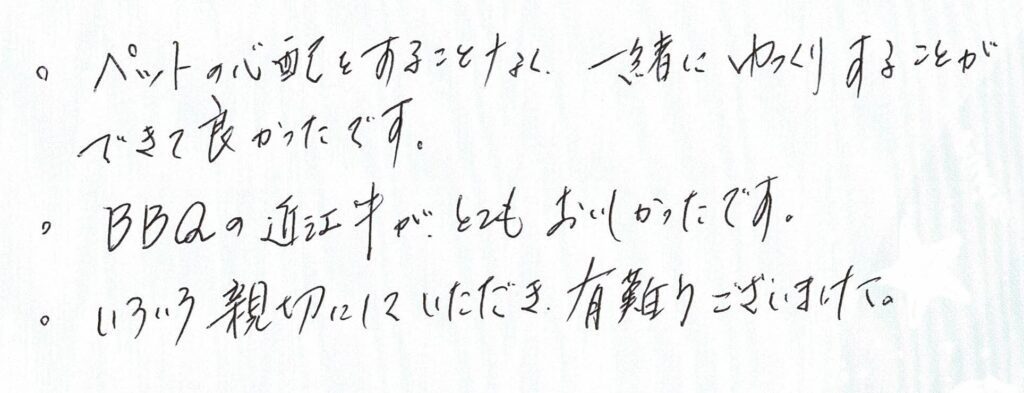 。ペットの心配をすることなく、一緒にゆっくりすることが
できて良かったです。
。BBQの近江牛が、とてもおいしかったです。
。いろいろ親切にしていただき、有難うございました。